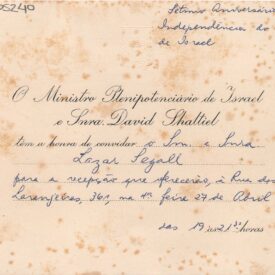 05240
Setimo Aniversário
Independência do
de Israel
O Ministro Plenipotenciário de Israel
e Snra. David Shaltiel
têm a honra de convidar o Snr. e Snra
Lazar Segall
para a recepção que oferecerão, à Rua das
Laranjeiras, 361, na 4ª feira 27 de Abril
das 19 às 21 horas